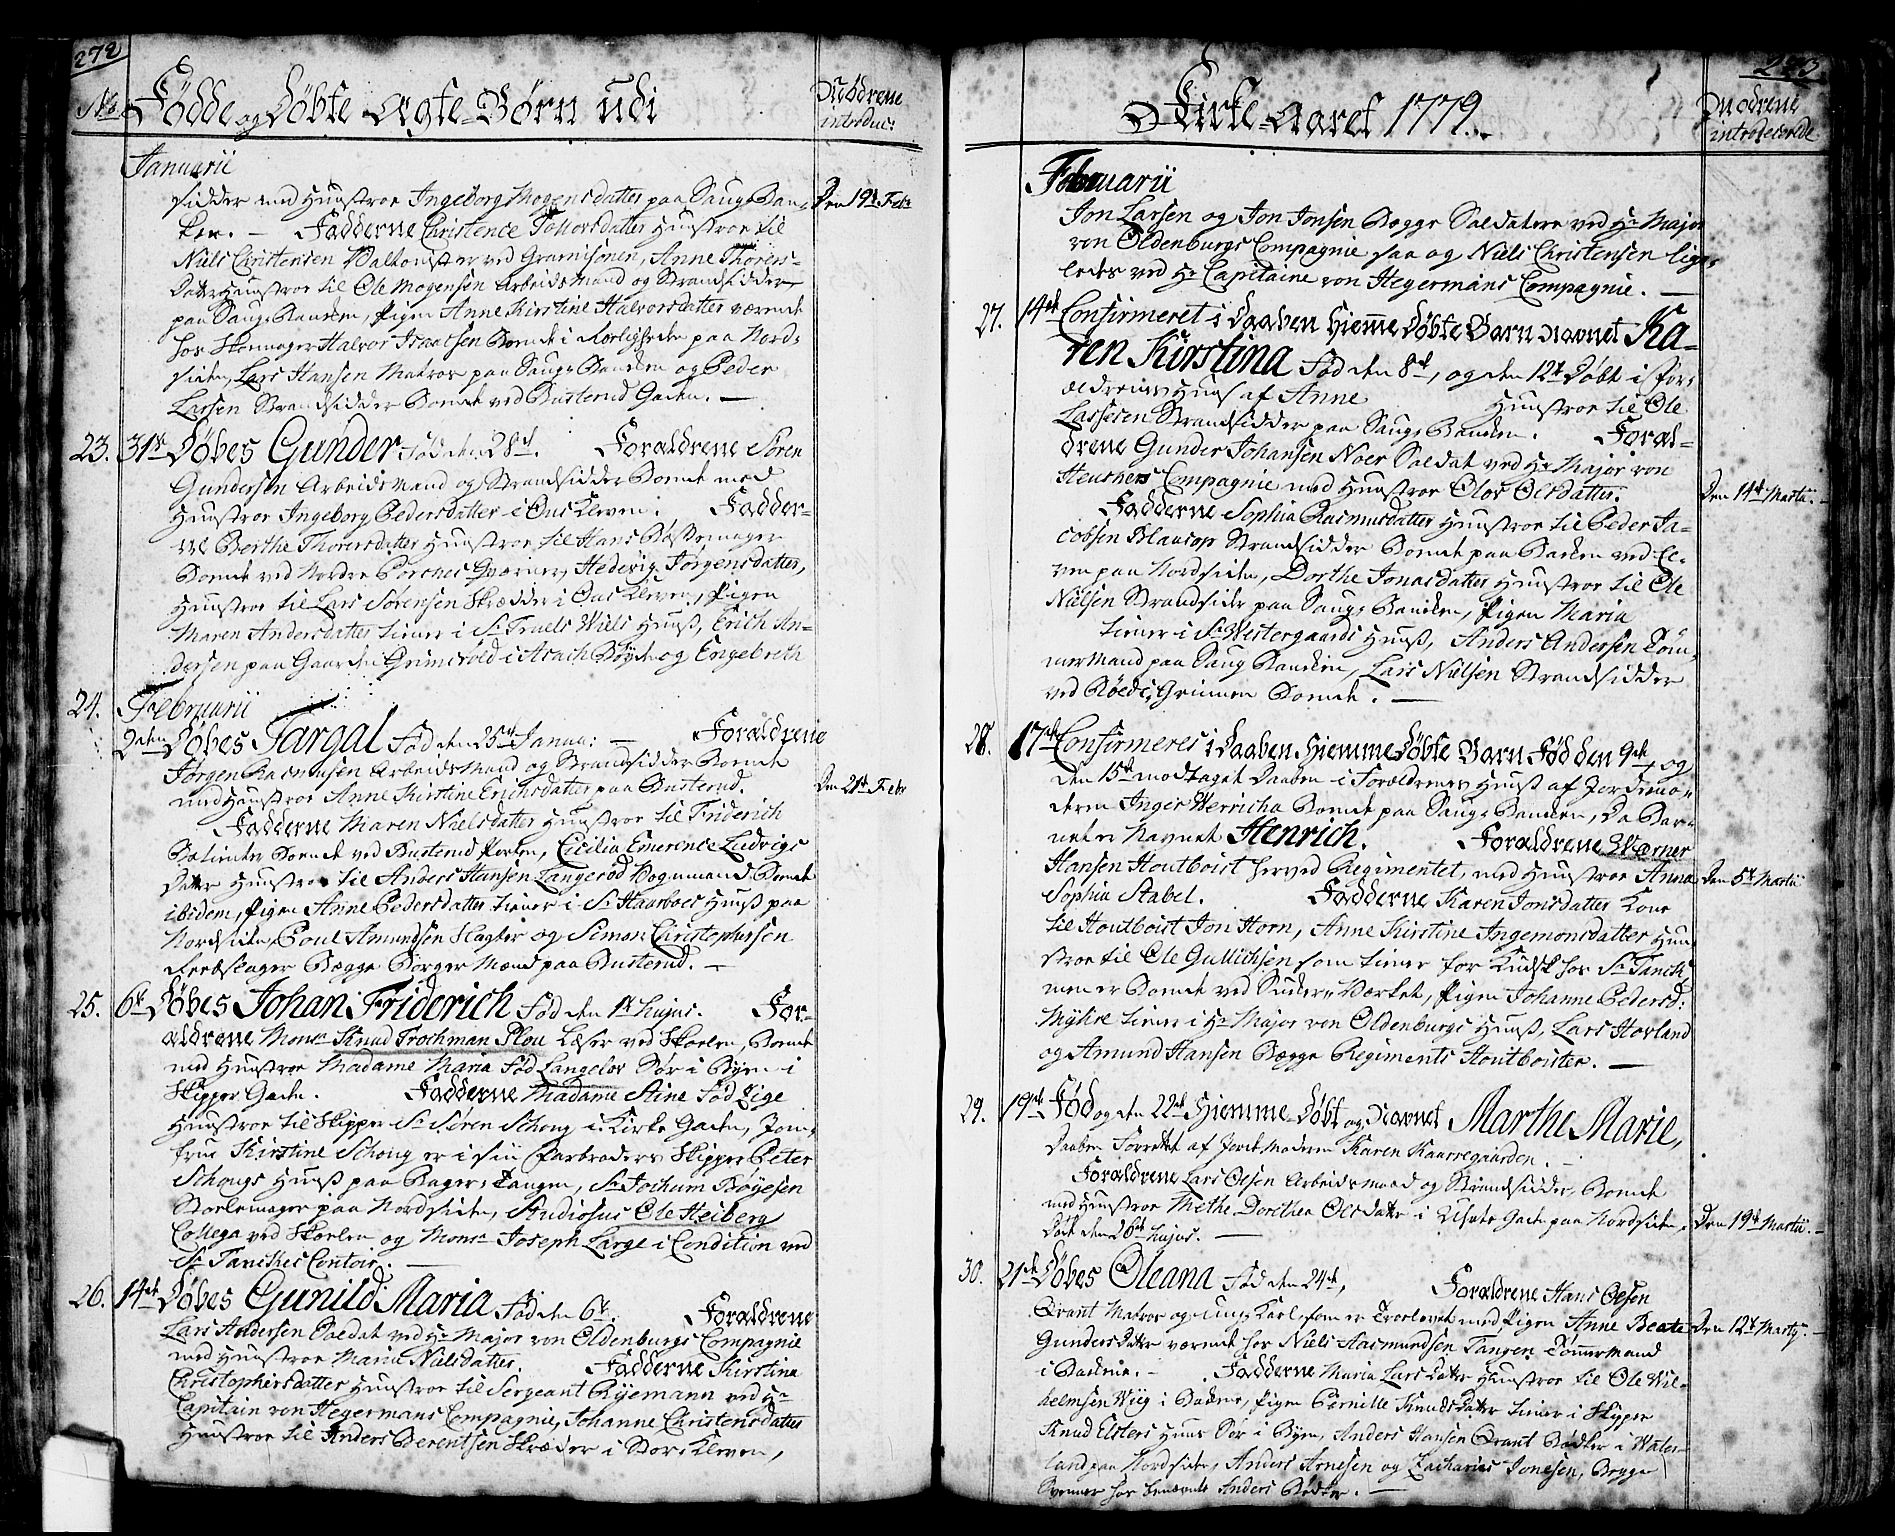 272
No. Födde og Döbte Ægte-Börn udi
Mödrene
introduc:
Januarii
sidder med Hustroe Ingeborg Mogensdatter paa Saug-Ban-
Den 19de Febr
ken. — Fadderne Christence Tollorsdatter Hustroe til
Niels Christensen Valkomster ved Gvarnisonen, Anne Thorers-
Datter Hustroe til Ole Mogensen Arbeidsmand og Strandsidder
paa Saug-Bancken, Pigen Anne Kirstine Halvorsdatter værende
hos Skomager Halvor Isaacsen Boende i paa Nord-
siden, Lars Hansen Matros paa Saug-Bancken og Peder
Larsen Strandsidder Boende ved Busterud Gaden. —
23. 31te Döbes Gunder Föd den 28de. Forældrene Sören
Gundersen Arbeidsmand og Strandsidder Boende med
Hustroe Ingeborg Pedersdatter i Kleven. Fadder-
ne Berthe Thorersdatter Hustroe til Hans
Boende ved Nordre Porches Qværner, Hedevig Jörgensdatter,
Hustroe til Lars Sörensen Skrædder i Kleven, Pigen
Maren Andersdatter tiener i Sr Truels Wiels Huus, Erich An-
dersen paa Gaarden Grimsrold i Asach Böyde og Engebreth
24. Februarii
2den Döbes Targal Föd den 25de Janua: — Forældrene
Jörgen Rasmusen Arbeidsmand og Strandsidder Boende
med Hustroe Anne Kirstine Erichsdatter paa Busterud.
Den 21de Febr
Fadderne Maren Nielsdatter Hustroe til Friderich
Boende ved Busterud Porten, Cicilia Emerence Ludvigs
Datter Hustroe til Anders Hansen Langeröd Vognmand Boende
ibidem, Pigen Anne Pedersdatter tiener i Sr Haarboes Huus paa
Nordsiden, Poul Amundsen Slagter og Simon Christophersen
Feldskager Begge Borger Mænd paa Busterud. —
25. 6te Döbes Johan Friderich Föd den 1te hujus. For-
ældrene Monsr Knud Trochman Plou Læser ved Skoelen, Boende
med Hustroe Madame Maria Föd Langelov Sör i Byen i
Skipper Gaden. Fadderne Madame Stine Föd Lige
Hustroe til Skipper Sr Sören Schong i Kirke Gaden, Jom-
frue Kirstine Schong er i sin Farbroders Skipper Peter
Schongs Huus paa Bager-Tangen, Sr Jochum Böyesen
Stoelemager paa Nordsiden, Studiosus Ole Heiberg
Collega ved Skoelen og Monsr Joseph Large i Condition ved
Sr Tanckes Contoir. —
26. 14de Döbes Gunild Maria Föd den 6te. Forældrene
Lars Andersen Soldat ved Hr Major von Oldenburgs Compagnie
med Hustroe Maria Nielsdatter. Fadderne Kirstina
Christophersdatter Hustroe til Sergeant Ryemann ved Hr
Capitain von Hegermans Compagnie, Johanne Christensdatter
Hustroe til Anders Berentsen Skræder i Stor-Kleven,
273
Kirke-Aaret 1779.
Mödrene
introducerede
Februarii
Jon Larsen og Jon Jonsen Begge Soldatere ved Hr Major
von Oldenburgs Compagnie saa og Niels Christensen lige-
ledes ved Hr Capitaine von Hegermans Compagnie. —
27. 14de Confirmeret i Daaben Hiemme Döbte Barn Navnet Ka-
ren Kirstina Föd den 8de, og den 12te Döbt i For-
ældrenes Huus af Anne Hustroe til Ole
Lassesen Strandsidder paa Saug-Bancken. Foræl-
drene Gunder Johansen Noer Soldat ved Hr Major von
Heuchers Compagnie med Hustroe Olor Olsdatter.
Den 14de Martii.
Fadderne Sophia Rasmusdatter Hustroe til Peder Ja-
cobsen Blaarop Strandsidder Boende paa Backen ved El-
ven paa Nordsiden, Dorthe Jonasdatter Hustroe til Ole
Nielsen Strandsider paa Saug-Bancken, Pigen Maria
tiener i Sr Westergaards Huus, Anders Andersen Töm-
mermand paa Saug Bancken, Lars Nielsen Strandsidder
ved Röeds-Grinnen Boende. —
28. 17de Confirmeres i Daaben Hiemme Döbte Barn Föd den 9de, og
den 15de modtaget Daaben i Forældrenes Huus af Jordemo-
deren Inger Werricha Boende paa Saug-Bancken, Da Bar-
net er Navnet Henrich. Forældrene Werner
Hansen Houtboist her ved Regimentet med Hustroe Anna
Den 5te Martii
Sophia Stabel. Fadderne Karen Jonsdatter Kone
til Houtboist Jon Horn, Anne Kirstine Ingemonsdatter Hu-
stroe til Ole Gullichsen som tiener for Kudsk hos Sr Tanck
men er Boende ved Sucker-Værket, Pigen Johanne Pedersd:
Myhre tiener i Hr Major von Oldenburgs Huus, Lars Hovland
og Amund Hansen Begge Regiments Houtboister. —
29. 19de Föd og den 22de Hiemme Döbt og Navnet Marthe Marie,
Daaben Forrettet af Jordemoderen Karen Kaarregaarden. —
Forældrene Lars Olsen Arbeidsmand og Strandsidder, Boende
med Hustroe Methe Dorthea Olsdatter i Gade paa Nordsiden,
Den 19de Martii.
Död den 26de hujus. —
30. 21de Döbes Oleana Föd den 24de, Forældrene Hans Olsen
Qvant Matros og Ung Karl, som er Trolovet med Pigen Anne Beate
Den 12te Martij.
Gunders Datter værende hos Niels Aasmundsen Tangen Tömmermand
i Backene. — Fadderne Maria Lars Datter Hustroe til Ole Wil-
helmsen Wiig i Backene, Pigen Pernille Knuds Datter tiener i Skipper
Knud Elsters Huus Sör i Byen, Anders Hansen Qvant Bödker i Water-
land paa Nordsiden, Anders Arnesen og Zacharias Jonesen, Begge
Svenner hos benævnte Anders Bödker. —